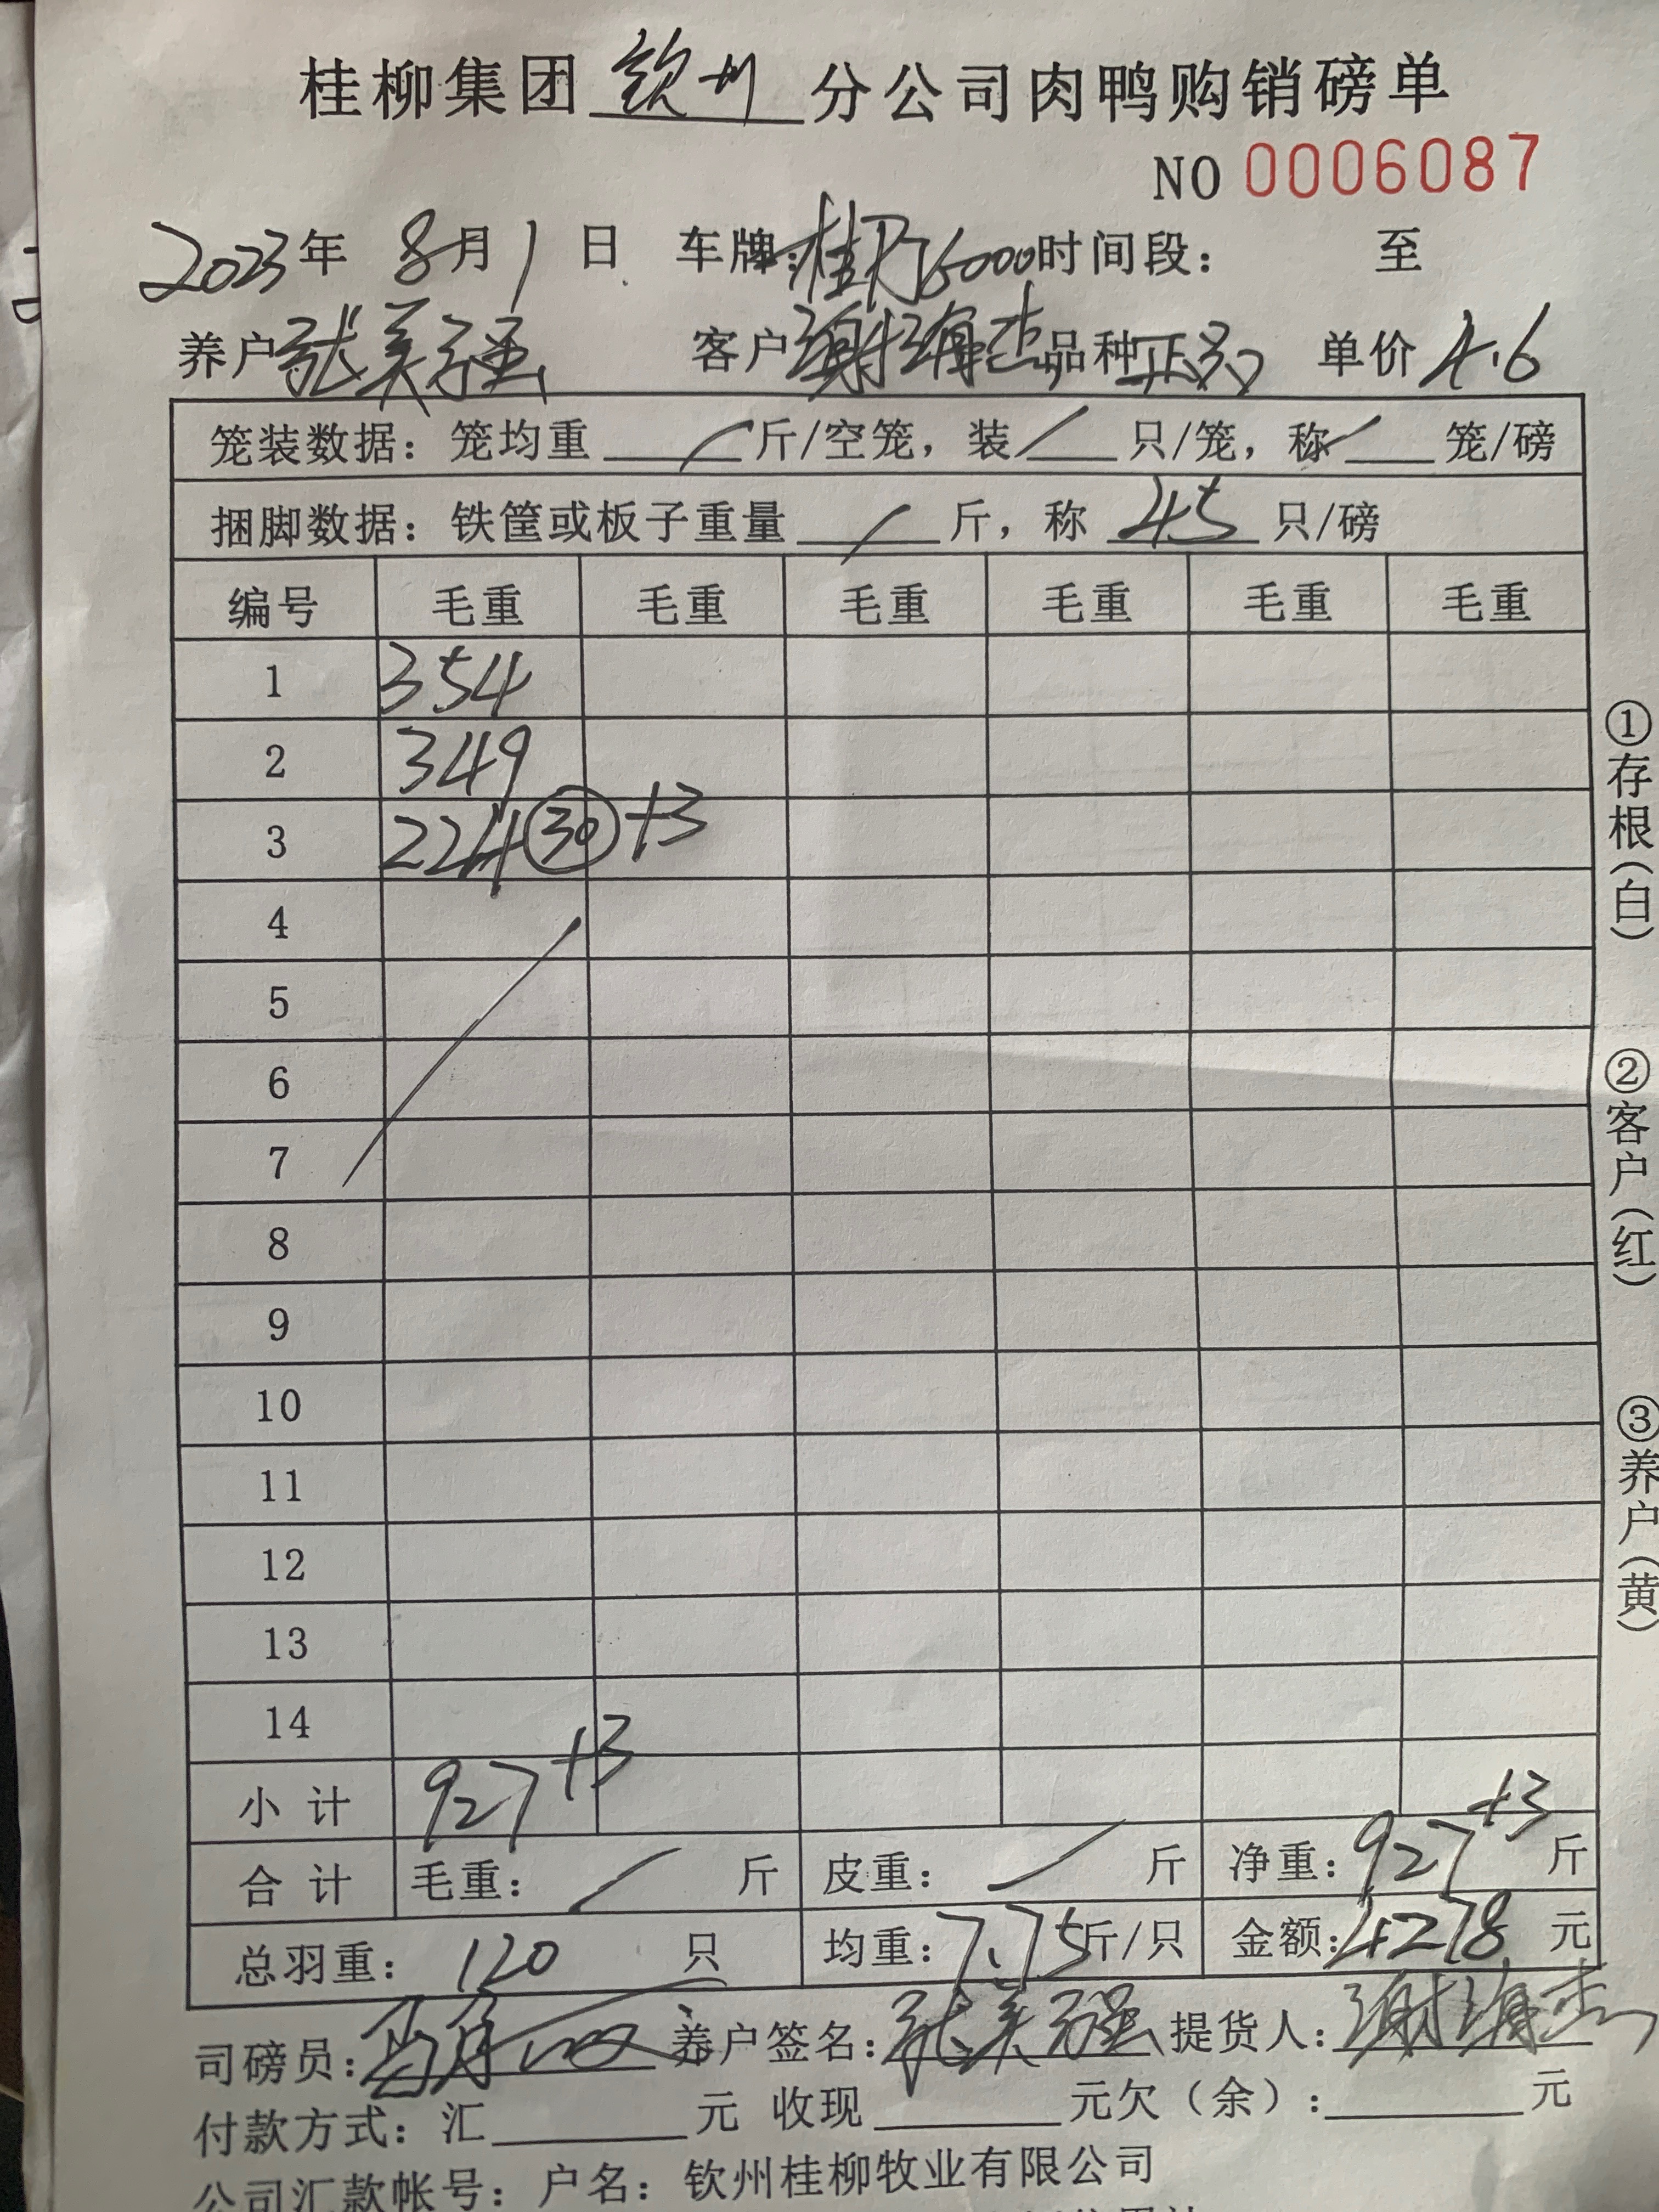 桂柳集团钦州分公司肉鸭购销磅单
NO 0006087
2023年 8月1日 车牌:桂 6000时间段: 至
养户张美强 客户谢海杰品种正品 单价4.6
笼装数据:笼均重 / 斤/空笼,装 / 只/笼,称 / 笼/磅
捆脚数据:铁筐或板子重量 / 斤,称 45 只/磅
编号 毛重 毛重 毛重 毛重 毛重 毛重
1 354
2 349
3 224 ㉚ +3
4
5
6
7
8
9
10
11
12
13
14
小计 927+3
合计 毛重: / 斤 皮重: / 斤 净重:927+3 斤
总羽重: 120 只 均重:7.75斤/只 金额:4278 元
司磅员: 养户签名:张美强 提货人:谢海杰
付款方式:汇 元 收现 元欠(余): 元
公司汇款帐号:户名:钦州桂柳牧业有限公司
①存根(白)
②客户(红)
③养户(黄)